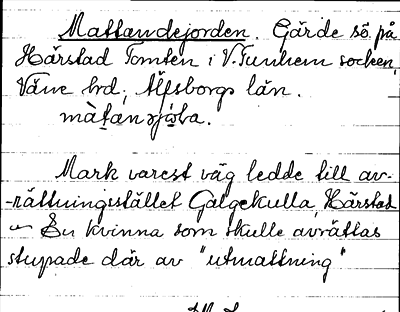 Mattandejorden. Gärde sö på
Härstad Tomten i V. Tunhem socken,
Väne hrd, Älfsborgs län.
Mark varest väg ledde till av-
-rättningsstället Galgekulla, Härstad
~ En kvinna som skulle avrättas
stupade där av "utmattning"